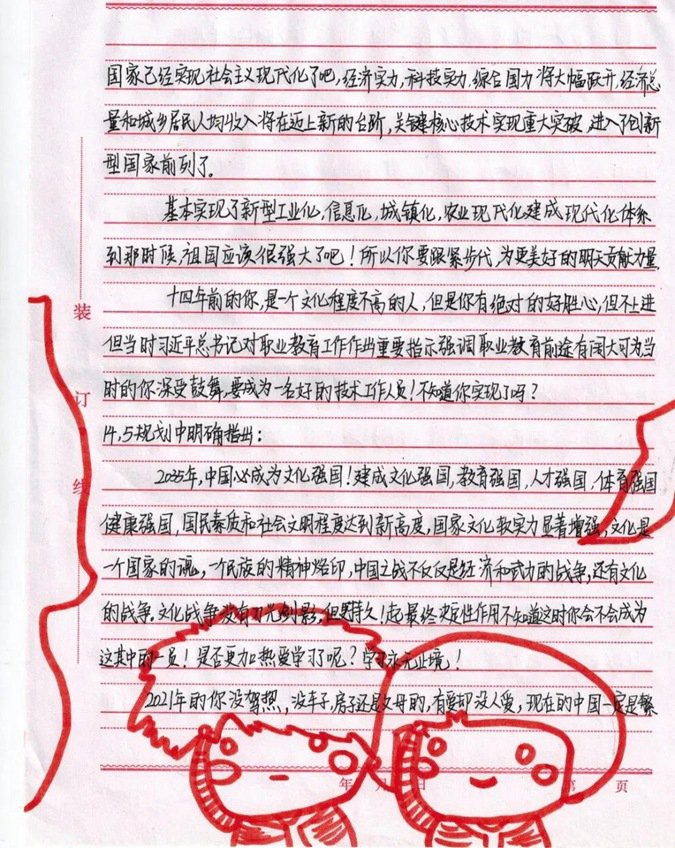 国家已经实现社会主义现代化了吧，经济实力，科技实力，综合国力将大幅跃升，经济总
量和城乡居民人均收入将在迈上新的台阶，关键核心技术实现重大突破，进入了创新
型国家前列了。
基本实现了新型工业化，信息化，城镇化，农业现代化建成现代化体系
到那时候，祖国应该很强大了吧！所以你要跟紧步伐，为更美好的明天贡献力量.
十四年前的你，是一个文化程度不高的人，但是你有绝对的好胜心，但不上进
但当时习近平总书记对职业教育工作作出重要指示强调职业教育前途有阔大可为当
时的你深受鼓舞，要成为一名好的技术工作人员！不知道你实现了吗？
14.5规划中明确指出：
2035年，中国必成为文化强国！建成文化强国，教育强国，人才强国，体育强国
健康强国，国民素质和社会文明程度达到新高度，国家文化软实力显著增强，文化是
一个国家的魂，一个民族的精神烙印，中国之战不仅仅是经济和武力的战争，还有文化
的战争。文化战争没有刀光剑影，但更持久！起最终决定性作用不知道这时你会不会成为
这其中的一员！是否更加热爱学习了呢？学习永无止境！
2021年的你没驾照，没车子，房子还是父母的，有爱却没人爱，现在的中国一定是繁
装
订
线
年 月 日
第 页